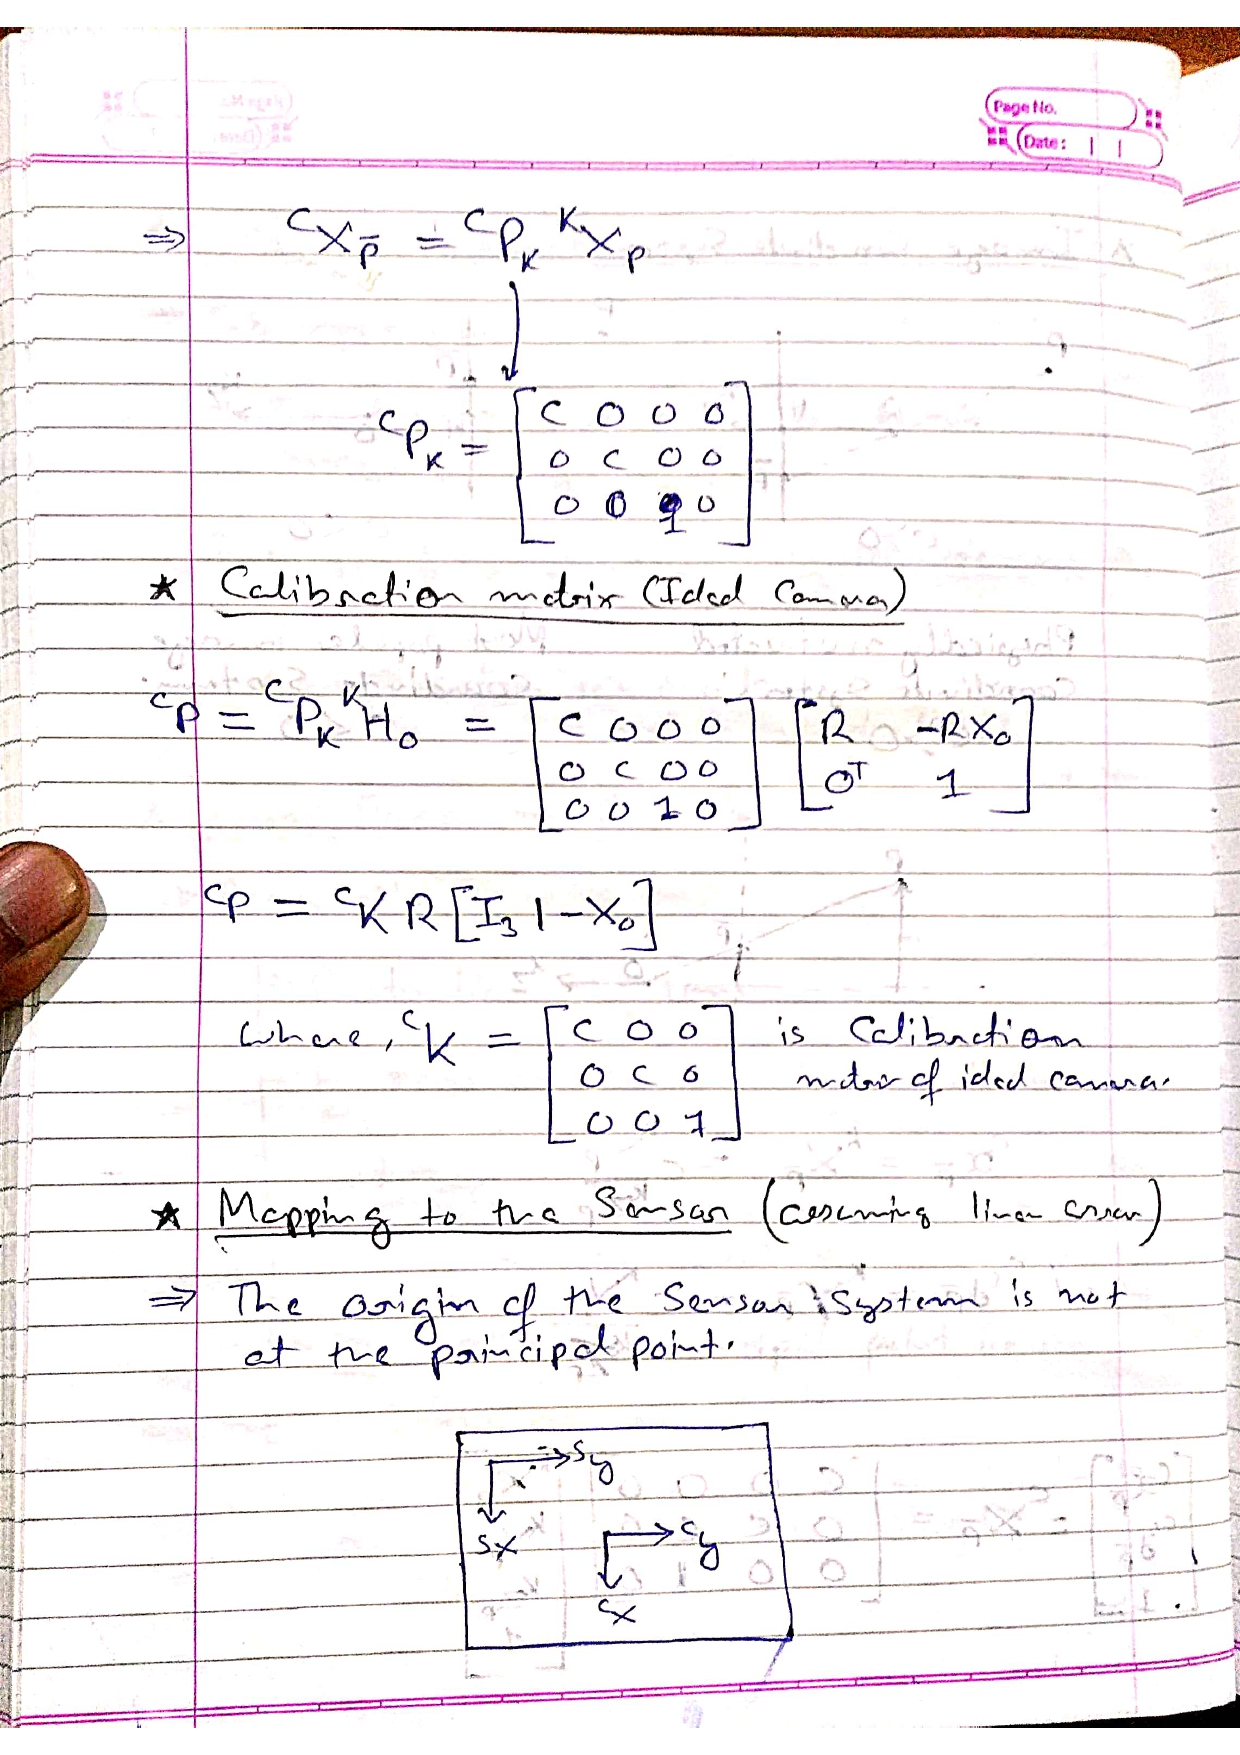 Page No.
Date:
⇒ ᶜX_p̄ = ᶜP_K ᴷX_p
ᶜP_K = [C 0 0 0
0 C 0 0
0 0 1 0]
★ Calibration matrix (Ideal Camera)
ᶜP = ᶜP_K ᴷH_0 = [C 0 0 0 [R -RX_0
0 C 0 0 0ᵀ 1]
0 0 1 0]
ᶜP = ᶜK R [I_3 | -X_0]
where, ᶜK = [C 0 0 is Calibration
0 C 0 matrix of ideal camera.
0 0 1]
★ Mapping to the Sensor (assuming linear error)
⇒ The origin of the Sensor System is not
at the principal point.
ˢy
ˢx
ᶜy
ᶜx